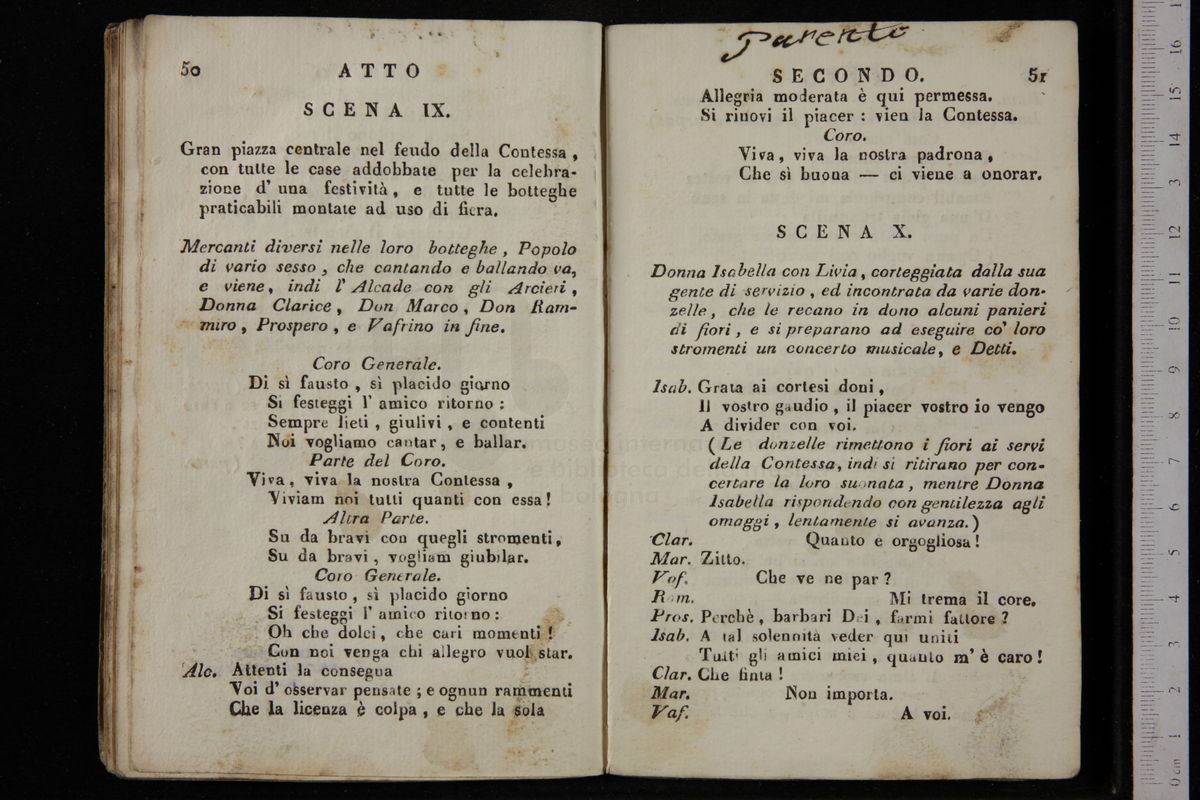 50 ATTO
SCENA IX.
Gran piazza centrale nel feudo della Contessa,
con tutte le case addobbate per la celebra-
zione d' una festività, e tutte le botteghe
praticabili montate ad uso di fiera.
Mercanti diversi nelle loro botteghe, Popolo
di vario sesso, che cantando e ballando va,
e viene, indi l' Alcade con gli Arcieri,
Donna Clarice, Don Marco, Don Ram-
miro, Prospero, e Vafrino in fine.
Coro Generale.
Di sì fausto, sì placido giorno
Si festeggi l' amico ritorno:
Sempre lieti, giulivi, e contenti
Noi vogliamo cantar, e ballar.
Parte del Coro.
Viva, viva la nostra Contessa,
Viviam noi tutti quanti con essa!
Altra Parte.
Su da bravi con quegli stromenti,
Su da bravi, vogliam giubilar.
Coro Generale.
Di sì fausto, sì placido giorno
Si festeggi l' amico ritorno:
Oh che dolci, che cari momenti!
Con noi venga chi allegro vuol star.
Alc. Attenti la consegna
Voi d' osservar pensate; e ognun rammenti
Che la licenza è colpa, e che la sola
Parento
SECONDO. 51
Allegria moderata è qui permessa.
Si rinovi il piacer: vien la Contessa.
Coro.
Viva, viva la nostra padrona,
Che sì buona — ci viene a onorar.
SCENA X.
Donna Isabella con Livia, corteggiata dalla sua
gente di servizio, ed incontrata da varie don-
zelle, che le recano in dono alcuni panieri
di fiori, e si preparano ad eseguire co' loro
stromenti un concerto musicale, e Detti.
Isab. Grata ai cortesi doni,
Il vostro gaudio, il piacer vostro io vengo
A divider con voi.
(Le donzelle rimettono i fiori ai servi
della Contessa, indi si ritirano per con-
certare la loro suonata, mentre Donna
Isabella rispondendo con gentilezza agli
omaggi, lentamente si avanza.)
Clar. Quanto e orgogliosa!
Mar. Zitto.
Vaf. Che ve ne par?
Ram. Mi trema il core.
Pros. Perchè, barbari Dei, farmi fattore?
Isab. A tal solennità veder qui uniti
Tutti gli amici miei, quanto m' è caro!
Clar. Che finta!
Mar. Non importa.
Vaf. A voi.
museo interna
e biblioteca de
bologna